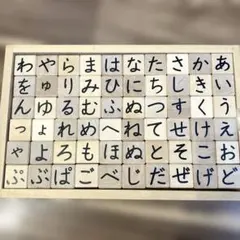 わやらまはなたさかあ
をゅりみひにちしきい
んゆるむふぬつすくう
っょれめへねてせけえ
ゃよろもほぬとそこお
ぷぶぱごべじだぜげど